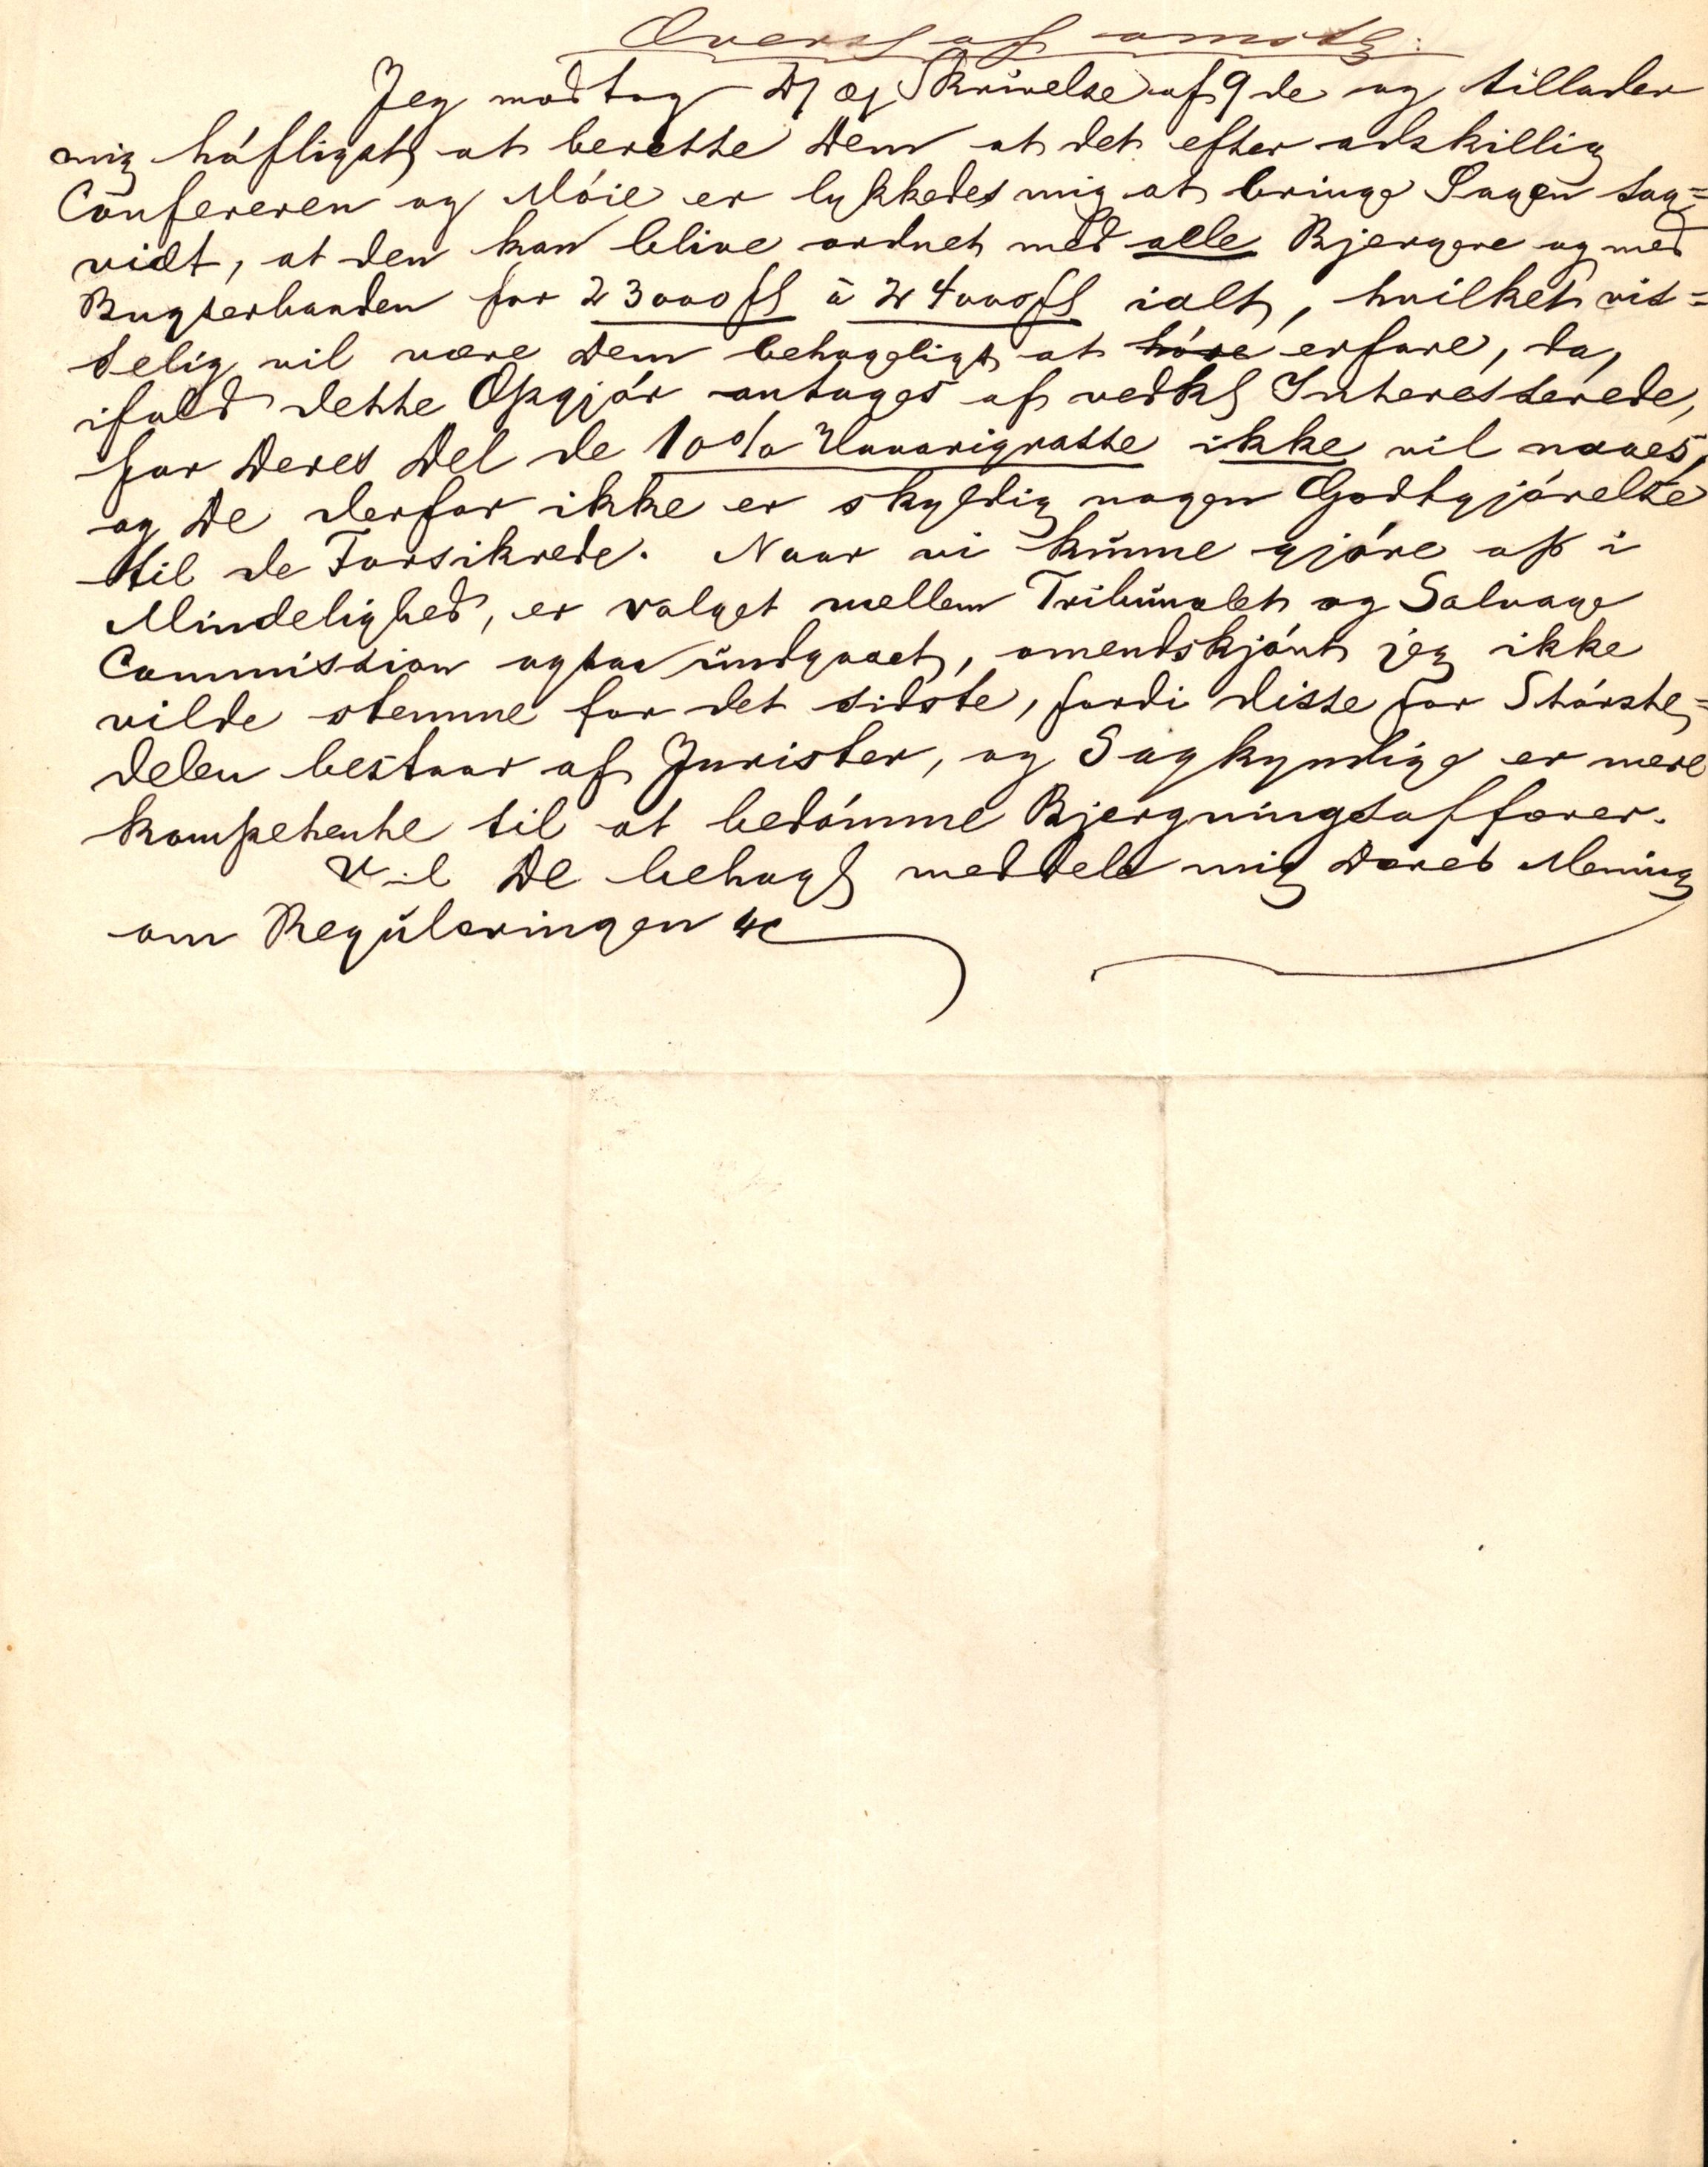 Overs af omstg:
Jeg modtog Dj æj Skrivelse af 9de og tillader
mig höfligst at berette Dem at det efter adskillig
Confereren og Möie er lykkedes mig at bringe Sagen saa=
vidt, at den kan blive ordnet med alle Bjergere og med
Bugserbaaden for 23000 fl à 24000 fl ialt, hvilket vis=
selig vil være Dem behageligt at höre erfare, da,
ifald dette Opgjör antages af vedk Interesserede,
for Deres Del de 10% Havarigrosse ikke vil naaes,
og De derfor ikke er skyldig nogen Godtgjörelse
til de Forsikrede. Naar vi kunne gjöre op i
Mindelighed, er valget mellem Tribunalet og Salvage
Commission ogsaa undgaaet, omendskjönt jeg ikke
vilde stemme for det sidste, fordi disse for Störste=
delen bestaar af Jurister, og Sagkyndige er mere
kompetente til at bedömme Bjergningsaffærer.
Vil De behagl meddele mig Deres Mening
om Reguleringen &c